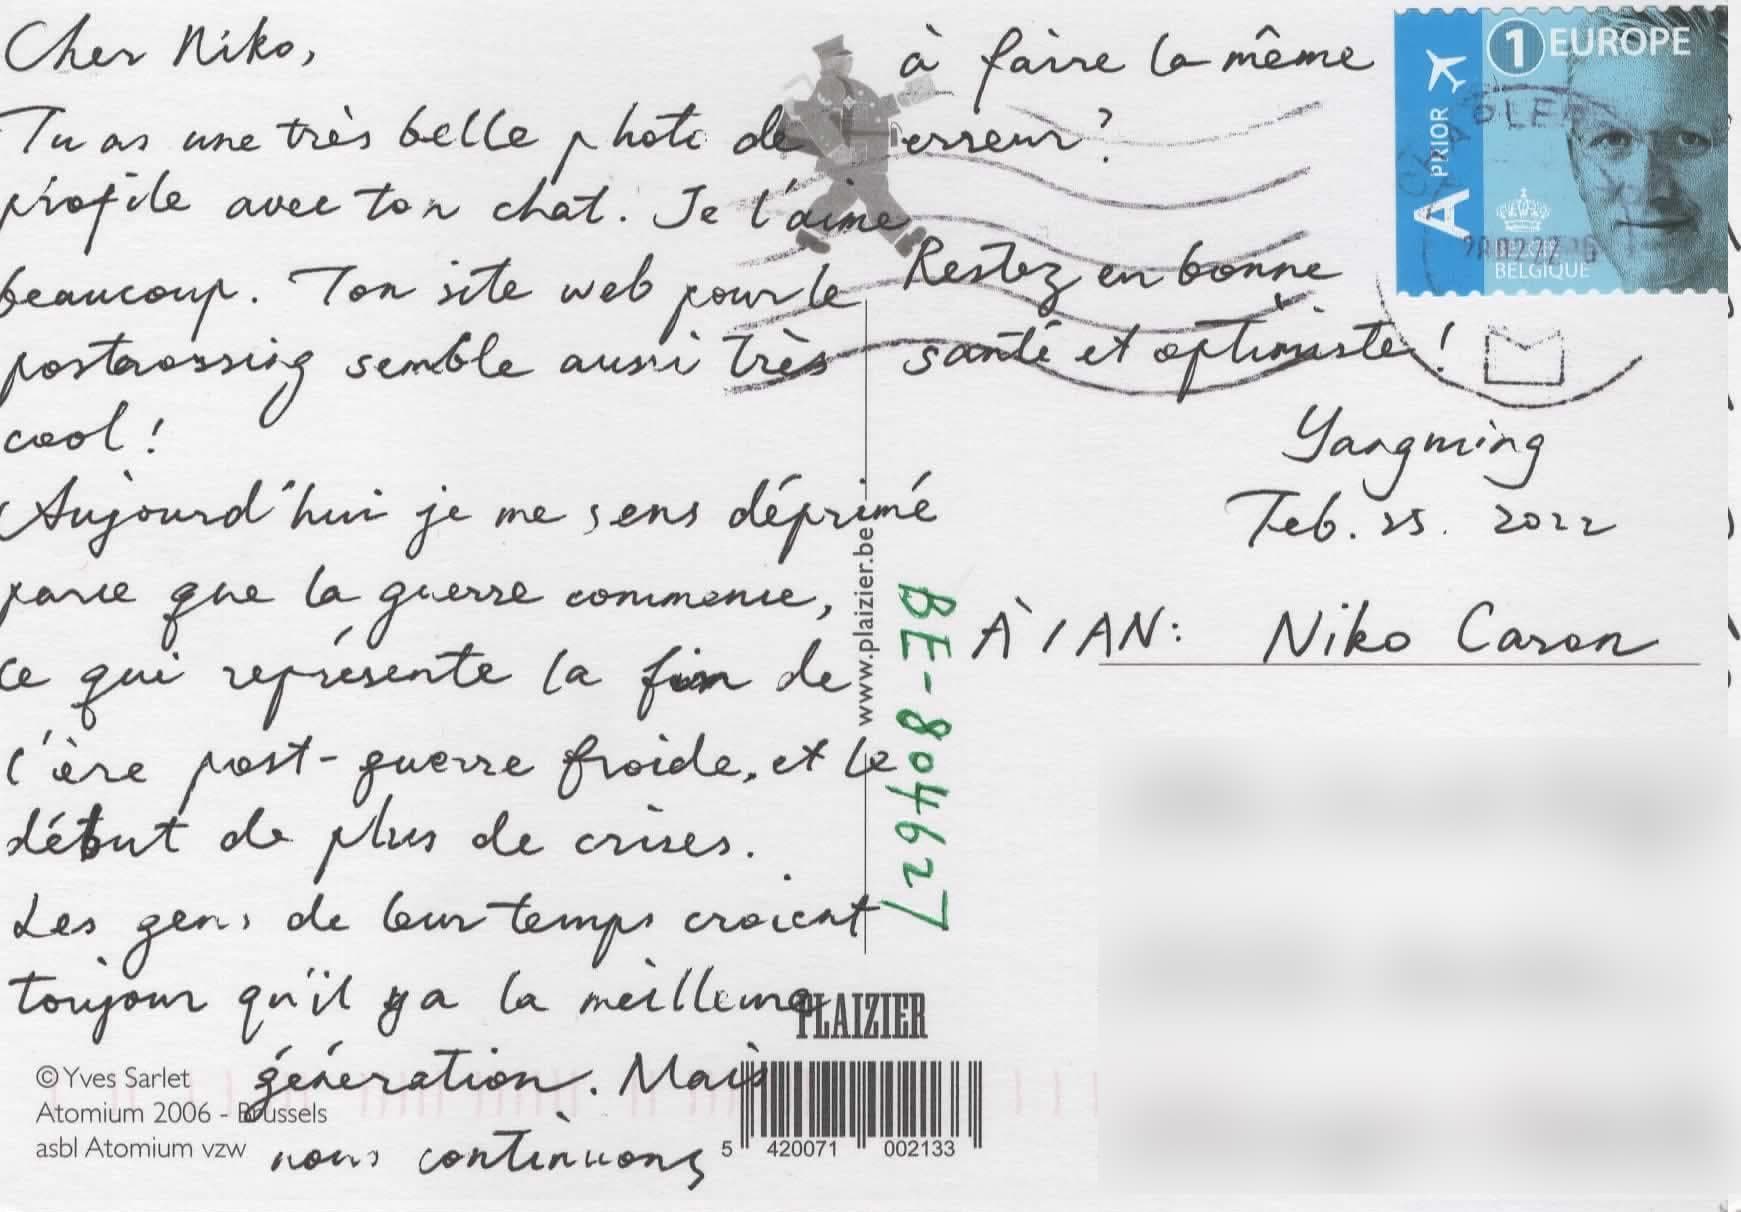 Cher Niko,
Tu as une très belle photo de
profile avec ton chat. Je l'aime
beaucoup. Ton site web pour le
postcrossing semble aussi très
cool!
Aujourd'hui je me sens déprimé
parce que la guerre commence,
ce qui représente la fin de
l'ère post-guerre froide, et le
début de plus de crises.
Les gens de leur temps croient
toujour qu'il y a la meilleure
génération. Mais
nous continuons
à faire la même
erreur?
Restez en bonne
santé et optimiste!
Yangming
Feb. 25. 2022
À / AN: Niko Caron
BE-804627
www.plaizier.be
PLAIZIER
5 420071 002133
©Yves Sarlet
Atomium 2006 - Brussels
asbl Atomium vzw
A PRIOR
1 EUROPE
BELGIË
BELGIQUE